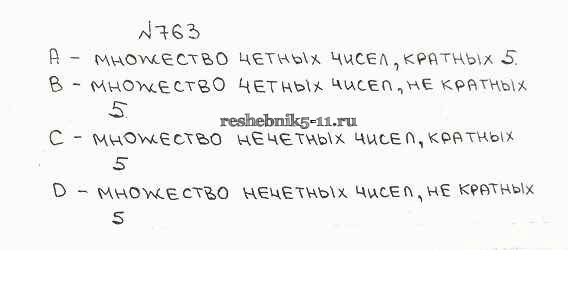 №763
A - множество четных чисел, кратных 5.
B - множество четных чисел, не кратных
5.
reshebnik5-11.ru
C - множество нечетных чисел, кратных
5
D - множество нечетных чисел, не кратных
5